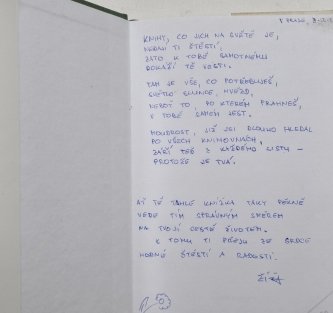 V PRAZE,
KNIHY, CO JICH NA SVĚTĚ JE,
NEDAJÍ TI ŠTĚSTÍ,
ZATO K TOBĚ SAMOTNÉMU
DOKÁŽÍ TĚ VÉSTI.
TAM JE VŠE, CO POTŘEBUJEŠ,
SVĚTLO SLUNCE, HVĚZD,
NEBOŤ TO, PO KTERÉM PRAHNEŠ,
V TOBĚ SAMÉM JEST.
MOUDROST, JIŽ JSI DLOUHO HLEDAL
PO VŠECH KNIHOVNÁCH,
ZÁŘÍ TEĎ Z KAŽDÉHO LISTU –
PROTOŽE JE TVÁ.
AŤ TĚ TAHLE KNÍŽKA TAKY PĚKNĚ
VEDE TÍM SPRÁVNÝM SMĚREM
NA TVOJÍ CESTĚ ŽIVOTEM.
K TOMU TI PŘEJU ZE SRDCE
HODNĚ ŠTĚSTÍ A RADOSTI.